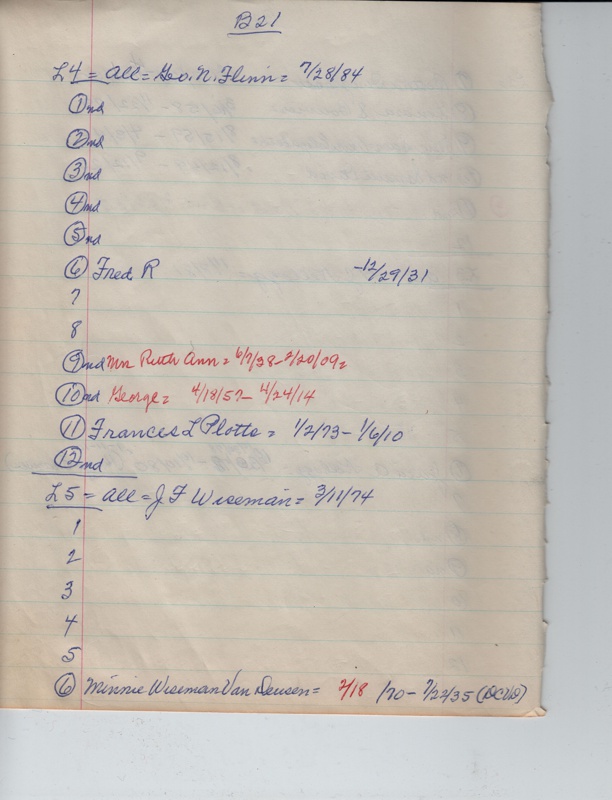 B21
L4 = all = Geo. N. Flinn = 7/28/84
1 nd
2 nd
3 nd
4 nd
5 nd
6 Fred R -12/29/31
7
8
9 nd Ruth Ann = 6/7/38-2/20/09
10 nd George = 4/18/57- 4/24/14
11 Frances L Plotts = 1/2/73- 1/6/10
12 nd
L5 = all = J F Wiseman = 3/11/74
1
2
3
4
5
6 Minnie Wiseman Van Deusen = 2/18 /70- 7/22/35